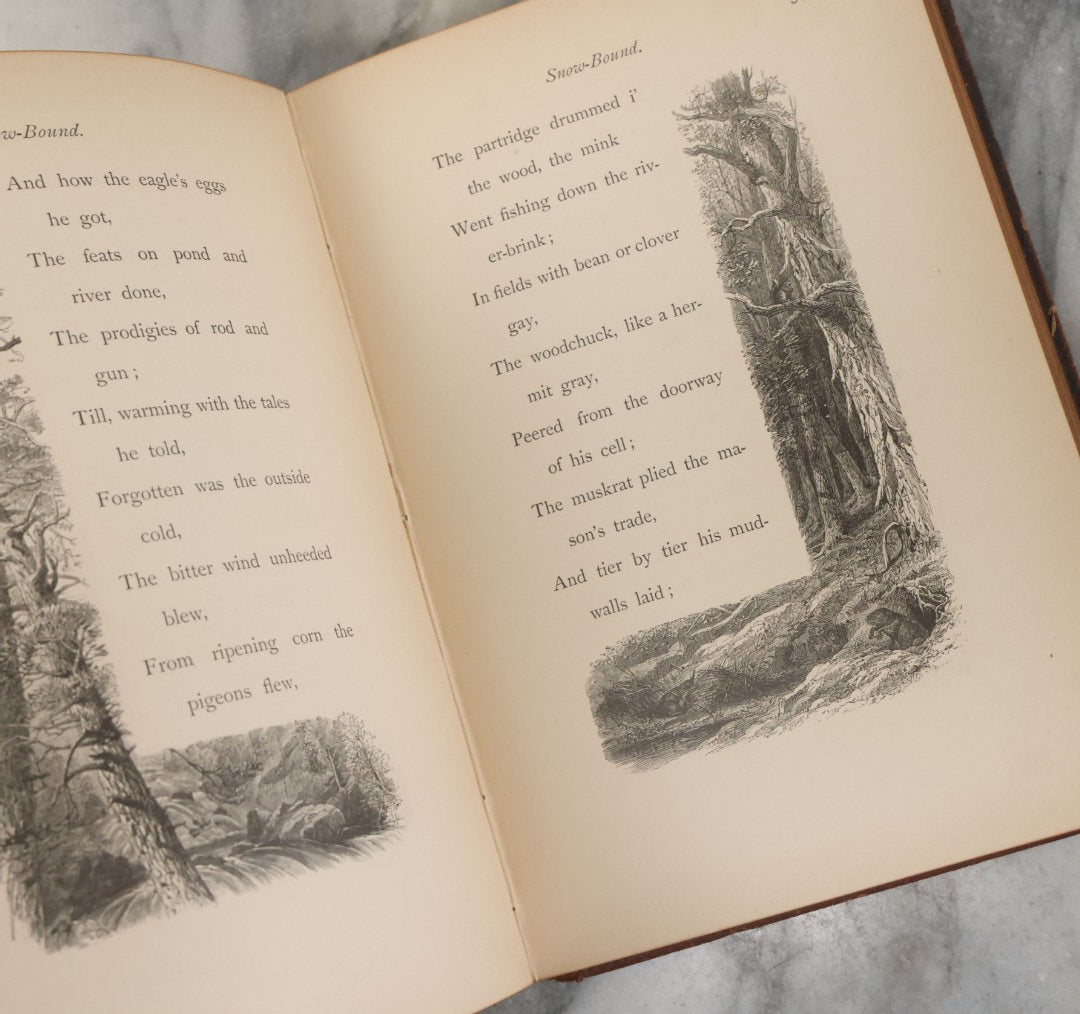 w-Bound.
And how the eagle's eggs
he got,
The feats on pond and
river done,
The prodigies of rod and
gun;
Till, warming with the tales
he told,
Forgotten was the outside
cold,
The bitter wind unheeded
blew,
From ripening corn the
pigeons flew,
Snow-Bound.
The partridge drummed i'
the wood, the mink
Went fishing down the riv-
er-brink;
In fields with bean or clover
gay,
The woodchuck, like a her-
mit gray,
Peered from the doorway
of his cell;
The muskrat plied the ma-
son's trade,
And tier by tier his mud-
walls laid;